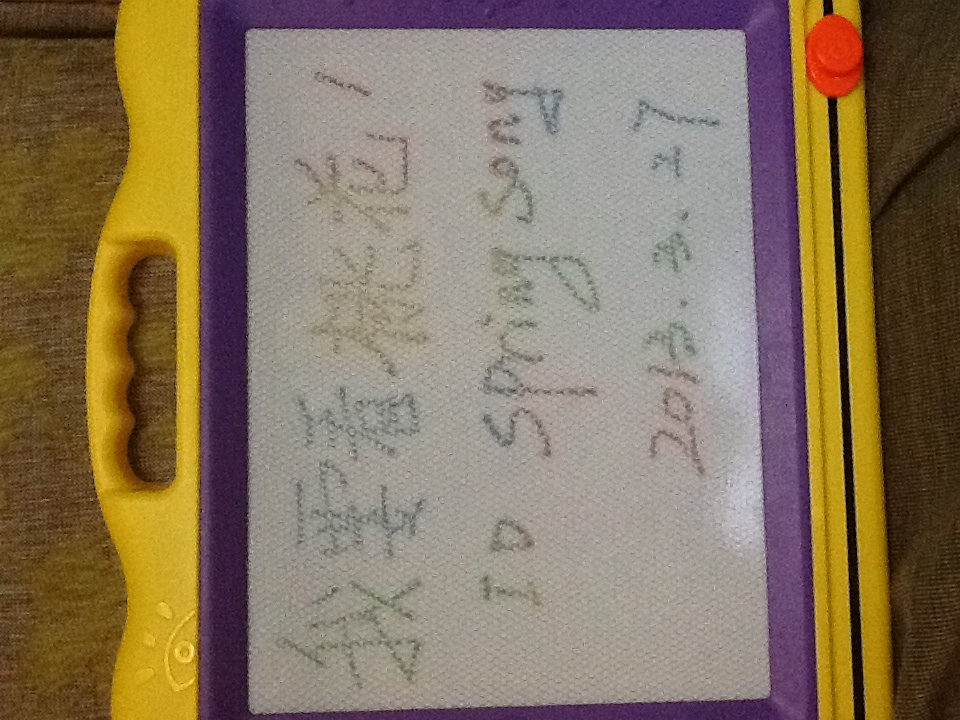 我要看桃花!
ID spring song
2013.3.27